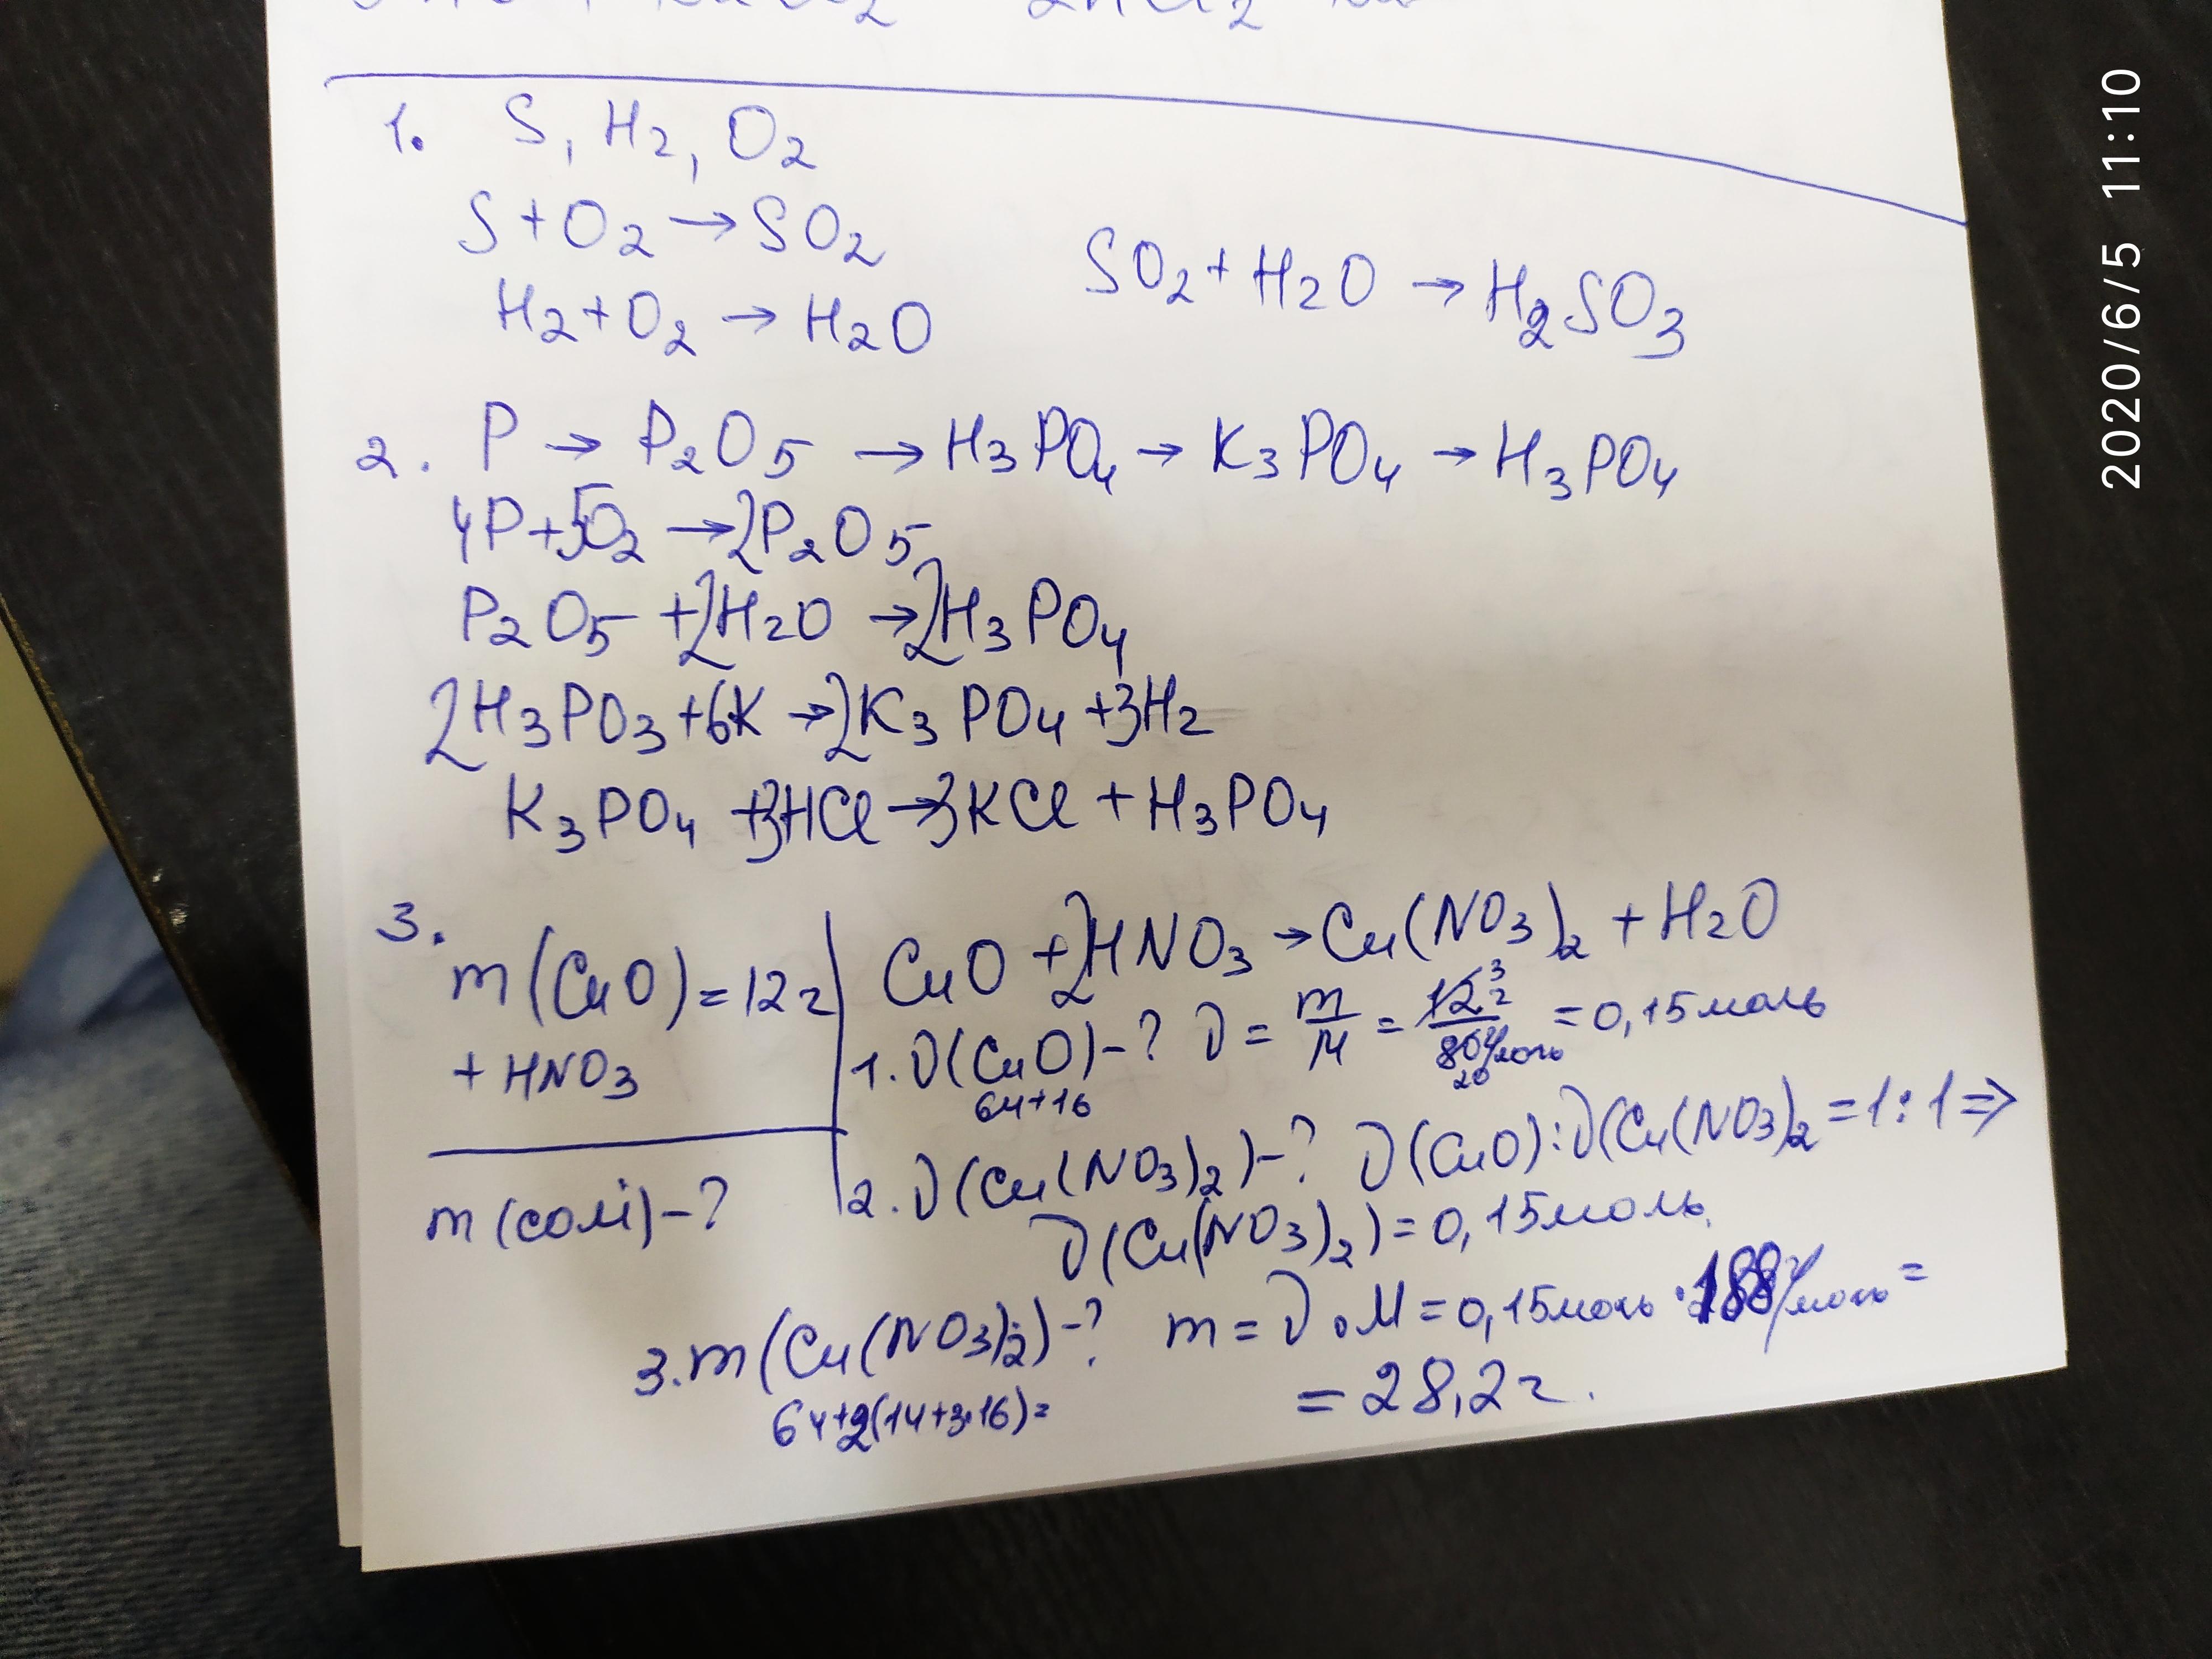 1. S, H2, O2
S + O2 → SO2
H2 + O2 → H2O
SO2 + H2O → H2SO3
2. P → P2O5 → H3PO4 → K3PO4 → H3PO4
4P + 5O2 → 2P2O5
P2O5 + 2H2O → 2H3PO4
2H3PO3 + 6K → 2K3PO4 + 3H2
K3PO4 + 3HCl → 3KCl + H3PO4
3.
m(CuO) = 12г
+ HNO3
m(солі) - ?
CuO + 2HNO3 → Cu(NO3)2 + H2O
1. ν(CuO) - ? ν = m/M = 12г/80г/моль = 0,15моль
64+16
3
20
2. ν(Cu(NO3)2) - ? ν(CuO) : ν(Cu(NO3)2 = 1 : 1 ⇒
ν(Cu(NO3)2) = 0,15моль.
3. m(Cu(NO3)2) - ? m = ν · M = 0,15моль · 188г/моль =
64+2(14+3·16)=
= 28,2г.
2020/6/5 11:10